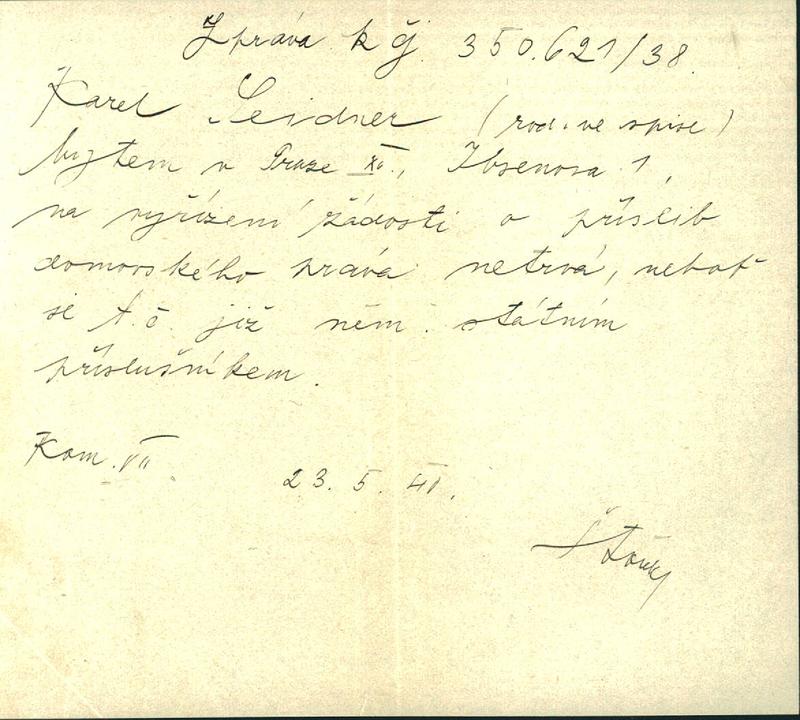 Zpráva k čj 350.621/38.
Karel Seidner (rod. ve spise)
bytem v Praze XII., Ibsenova 1,
na vyřízení žádosti o příslib
domovského práva netrvá, neboť
je t. č. již něm. státním
příslušníkem.
Kom. VII
23. 5. 41.